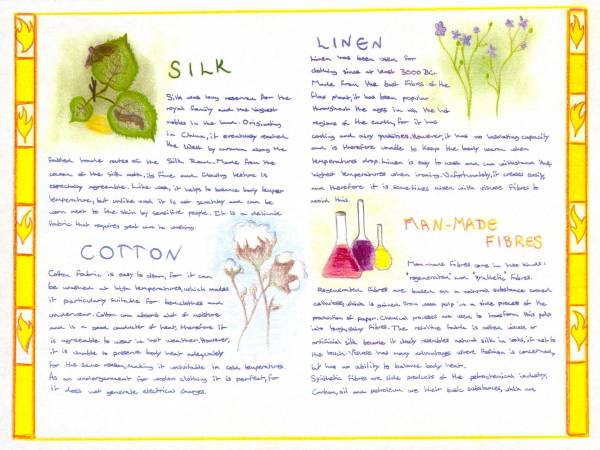 SILK
Silk was long reserved for the
royal family and the highest
nobles in the
in China, it eventually reached
the West by caravan along the
fabled trade routes of the Silk Road. Made from the
cocoon of the silk moth, its fine and flowing texture is
especially agreeable. Like wool, it helps to balance body temper
temperature, but unlike wool it is not scratchy and can be
worn next to the skin by sensitive people. It is a delicate
fabric that requires great care in washing.
COTTON
Cotton fabric is easy to clean, for it can
be washed at high temperatures, which makes
it particularly suitable for bedclothes and
underwear. Cotton can absorb a lot of moisture
and is a good conductor of heat, therefore it
is agreeable to wear in hot weather. However,
it is unable to preserve body heat adequately
for the same reason, making it unsuitable in cold temperatures.
As an undergarment for woolen clothing it is perfect, for
it does not generate electrical charges.
LINEN
Linen has been used for
clothing since at least 3000 BC.
Made from the bast fibres of the
flax plant, it has been popular
throughout the ages in the hot
regions of the earth, for it has
cooling and airy qualities. However, it has no insulating capacity
and is therefore unable to keep the body warm when
temperatures drop. Linen is easy to wash and can withstand the
highest temperatures when ironing. Unfortunately, it creases easily
and therefore it is sometimes mixed with viscose fibres to
avoid this.
MAN-MADE
FIBRES
Man-made fibres come in two kinds:
"regenerated" and "synthetic" fibres.
Regenerated fibres are based on a natural substance called
cellulose, which is gained from wood pulp in a side process of the
production of paper. Chemical processes are used to transform this pulp
into fibres. The resulting fabric is called viscose or
artificial silk because it closely resembles natural silk in looks, if not to
the touch. Viscose has many advantages where fashion is concerned,
but has no ability to balance body heat.
Synthetic fibres are side products of the petrochemical industry.
Carbon, oil and petroleum are their basic substances, which are